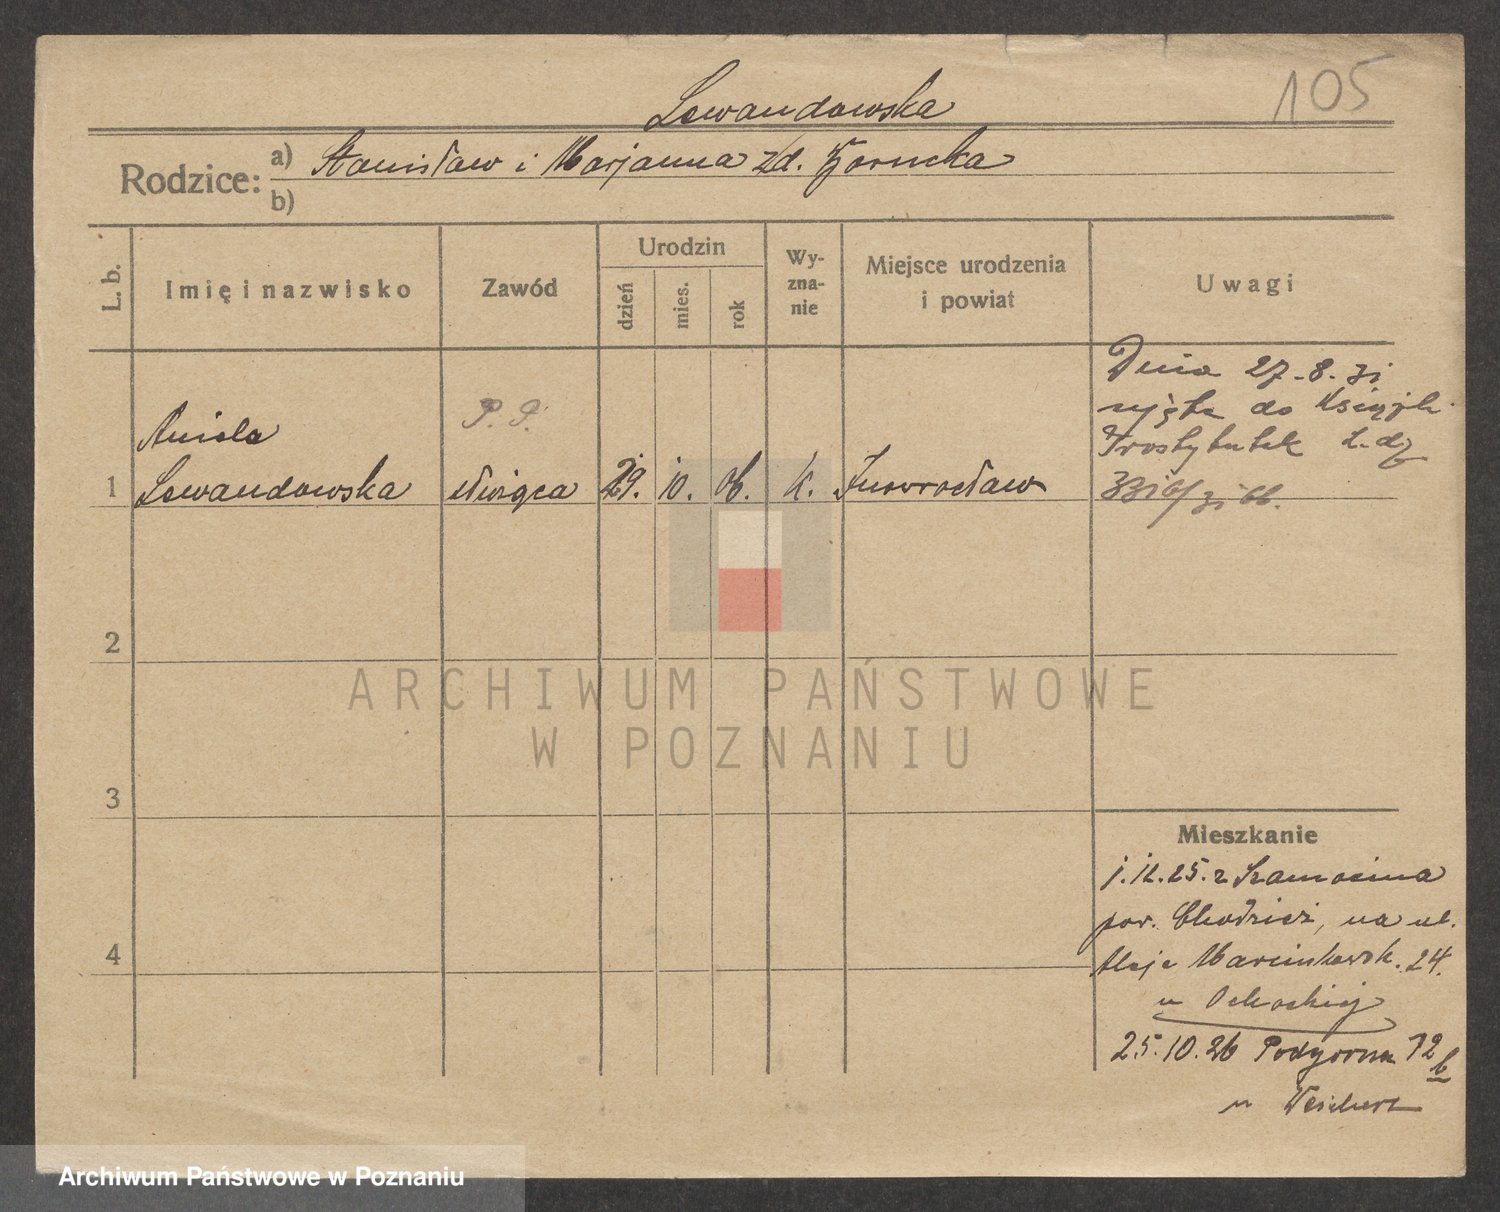 105
Lewandowska
Rodzice: a) Stanisław i Marjanna zd. Gornicka
b)
L. b.
Imię i nazwisko
Zawód
Urodzin
dzień
mies.
rok
Wy-
zna-
nie
Miejsce urodzenia
i powiat
Uwagi
1
Aniela
Lewandowska
P. P.
29. 10. 06. k. Inowrocław
Dnia 27-8-31
ujęta do Książk.
Prostytutek L.dz
2
3
4
Mieszkanie
1.12.25. z Szamocina
pow. Chodzież, na ul.
Aleje Marcinkowsk. 24.
u
25.10.26 Podgorna 12
b
u
ARCHIWUM PAŃSTWOWE
W POZNANIU
Archiwum Państwowe w Poznaniu